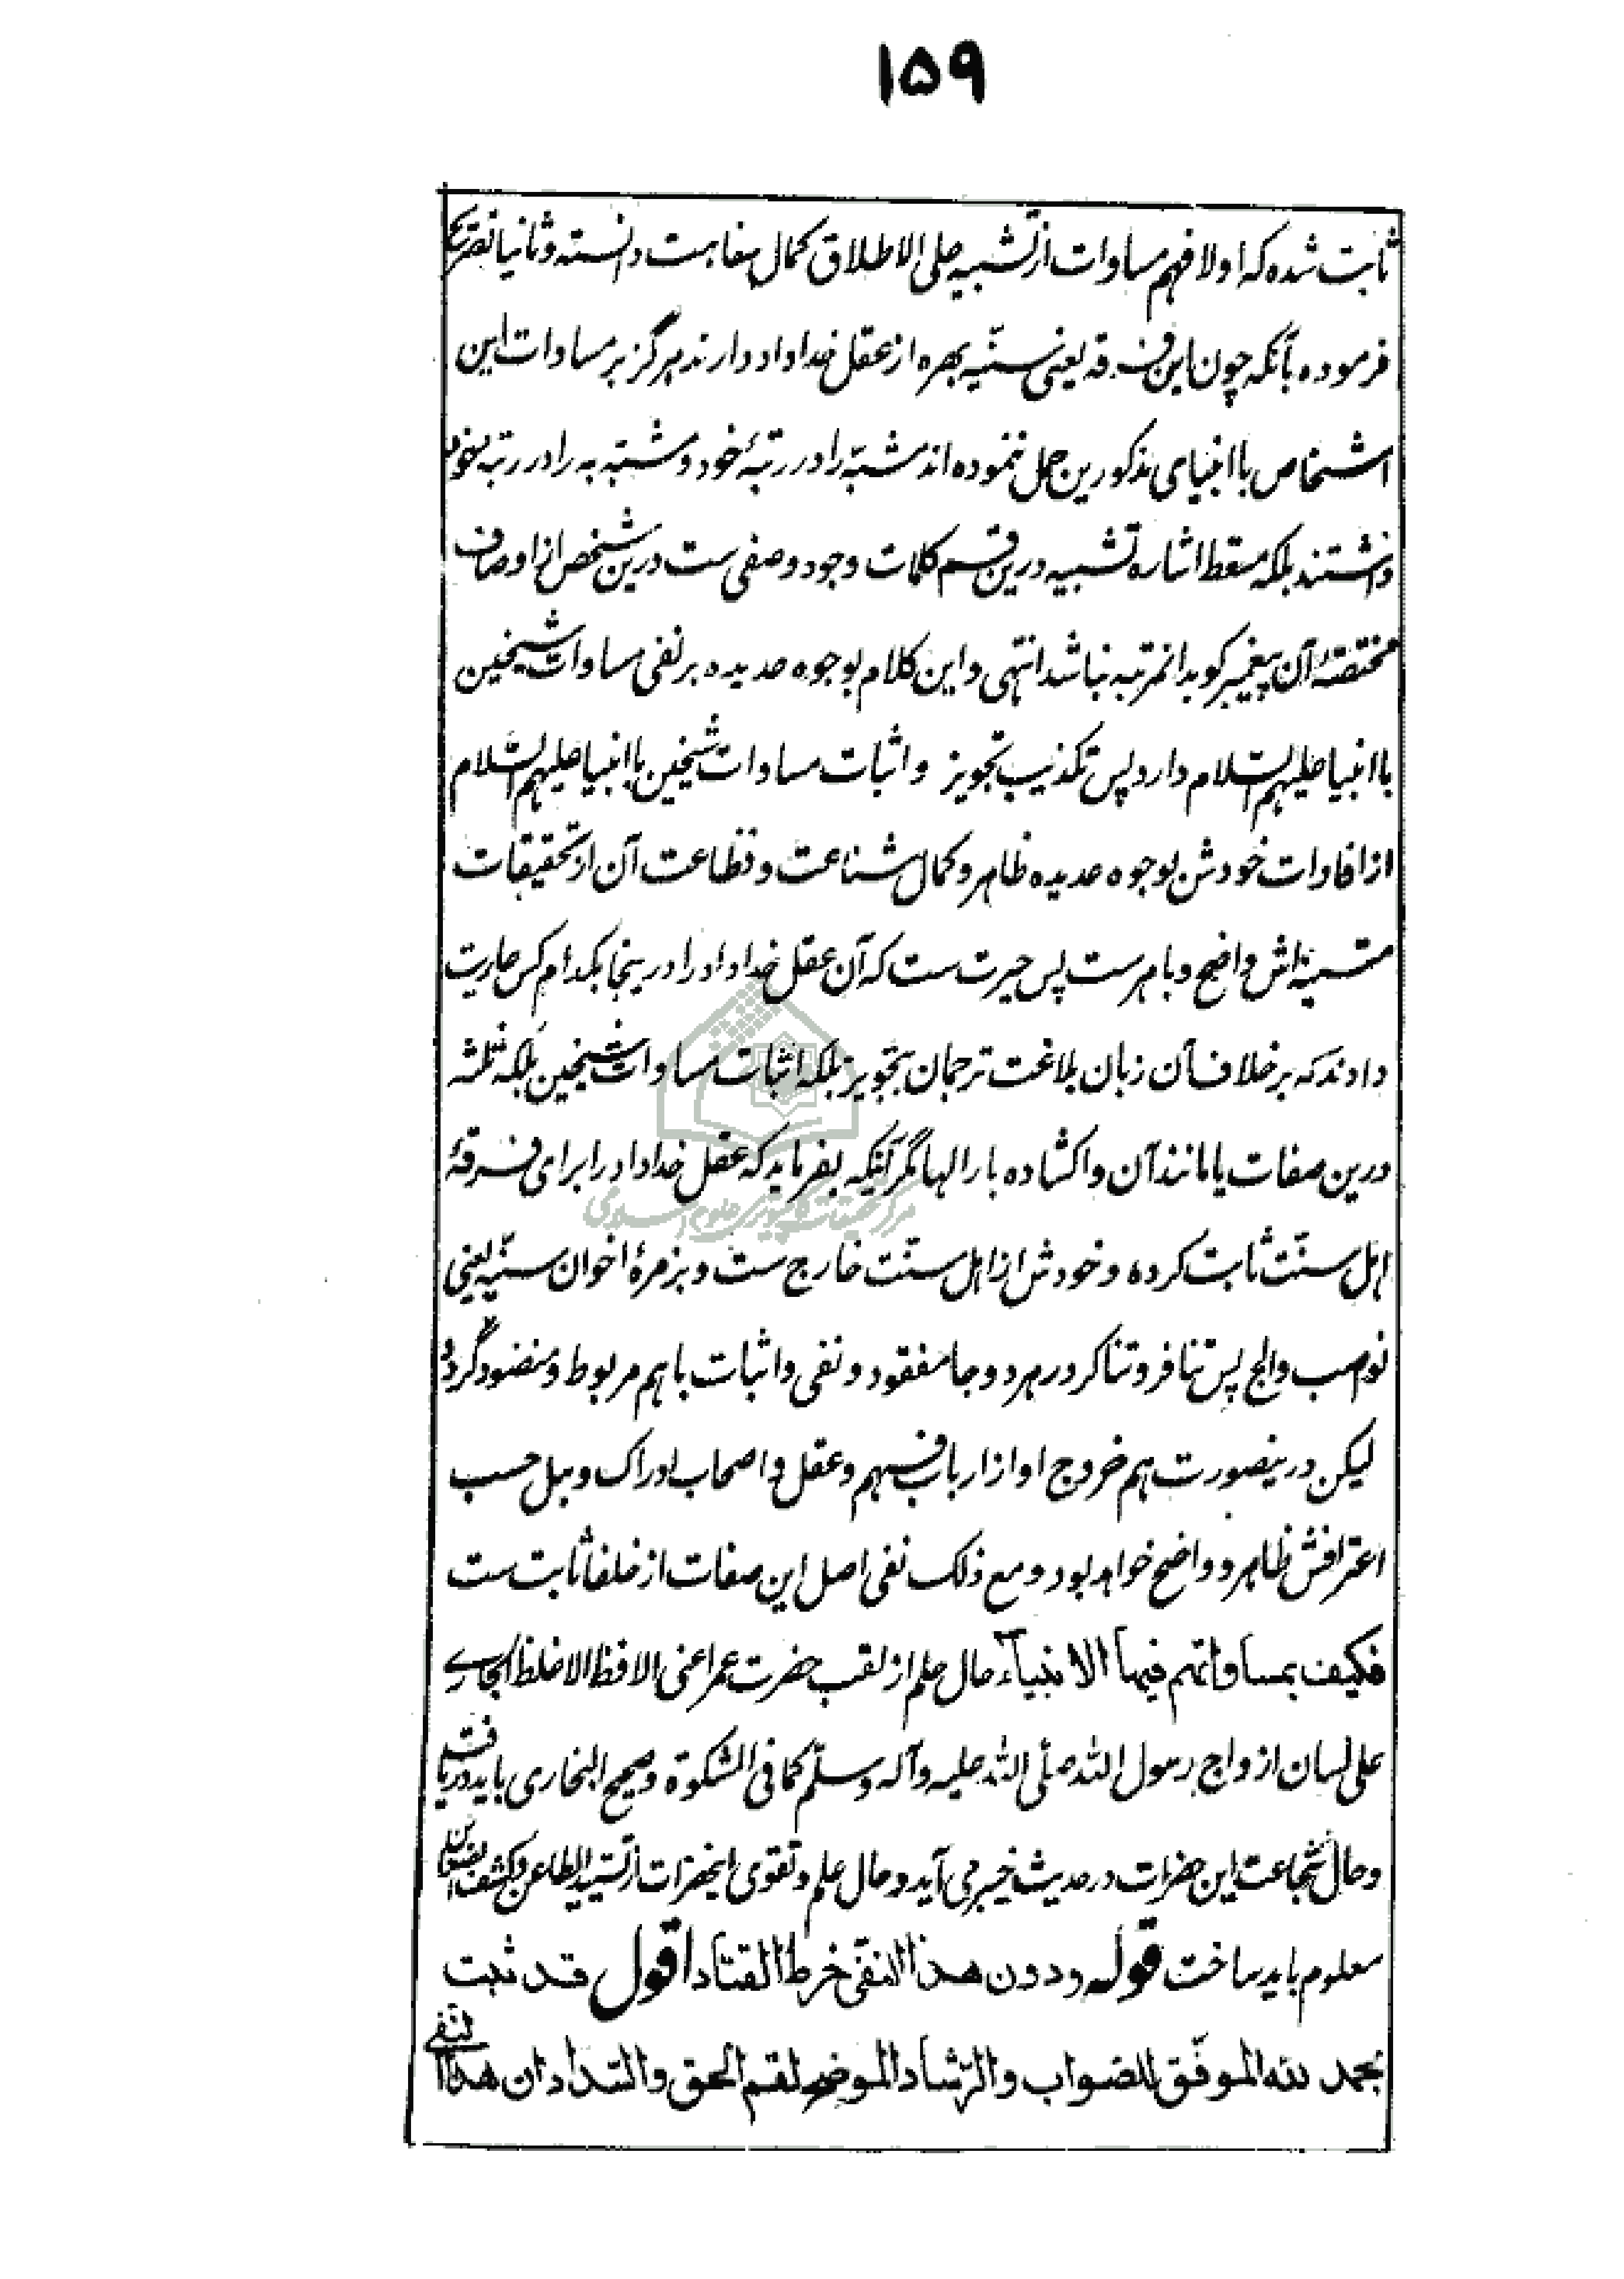 ۱۵۹
ثابت شده که اولا فهم مساوات از تشبیه علی الاطلاق کمال سفاهت دانسته و ثانیا تصریح
فرموده بآنکه چون این فرقه یعنی سنّیه بهره از عقل خداداد دارند هرگز بر مساوات این
اشخاص با انبیای مذکورین حمل ننموده اند مشبّه را در رتبهٔ خود و مشبّه به را در رتبه خود
داشتند بلکه مسقط اشاره تشبیه درین قسم کلمات وجود وصفی ست درین شخص از اوصاف
مختصّهٔ آن پیغمبر کو بدانمرتبه نباشد انتهی و این کلام بوجوه عدیده بر نفی مساوات شیخین
با انبیا علیهم السّلام دارد پس تکذیب تجویز و اثبات مساوات شیخین با انبیا علیهم السّلام
از افادات خودش بوجوه عدیده ظاهر و کمال شناعت و فظاعت آن از تحقیقات
متینه‌اش واضح و باهر ست پس حیرت ست که آن عقل خداداد را درینجا بکدام کس عاریت
دادند که بر خلاف آن زبان بلاغت ترجمان بتجویز بلکه اثبات مساوات شیخین بلکه ثلثه
درین صفات یا مانند آن واکشاده بارالها مگر آنکه بفرماید که عقل خداداد را برای فرقهٔ
اهل سنّت ثابت کرده و خودش از اهل سنّت خارج ست و بزمرهٔ اخوان سنّیه یعنی
نواصب والج پس تنافر و تناکر در هر دو جا مفقود و نفی و اثبات باهم مربوط و منضود گردد
لیکن درینصورت هم خروج او از ارباب فهم و عقل و اصحاب ادراک و نبل حسب
اعترافش ظاهر و واضح خواهد بود و مع ذلک نفی اصل این صفات از خلفا ثابت ست
فکیف بمساواتهم فیها الانبیاء حال حلم از لقب حضرت عمر اعنی الافظ الاغلظ الجاری
علی لسان ازواج رسول اللّه صلّی اللّه علیه و آله و سلّم کما فی المشکوة و صحیح البخاری باید دریافت
و حال شجاعت این حضرات در حدیث خیبر می آید و حال علم و تقوی اینحضرات از تشیید المطاعن و کشف الضغائن
معلوم باید ساخت قوله و دون هذا النفّی خرط القتاد اقول قد ثبت
بحمد للّه الموفّق للصّواب والرّشاد الموضح لقم الحق والسّداد ان هذا النفی
مرکز تحقیقات کامپیوتری علوم اسلامی